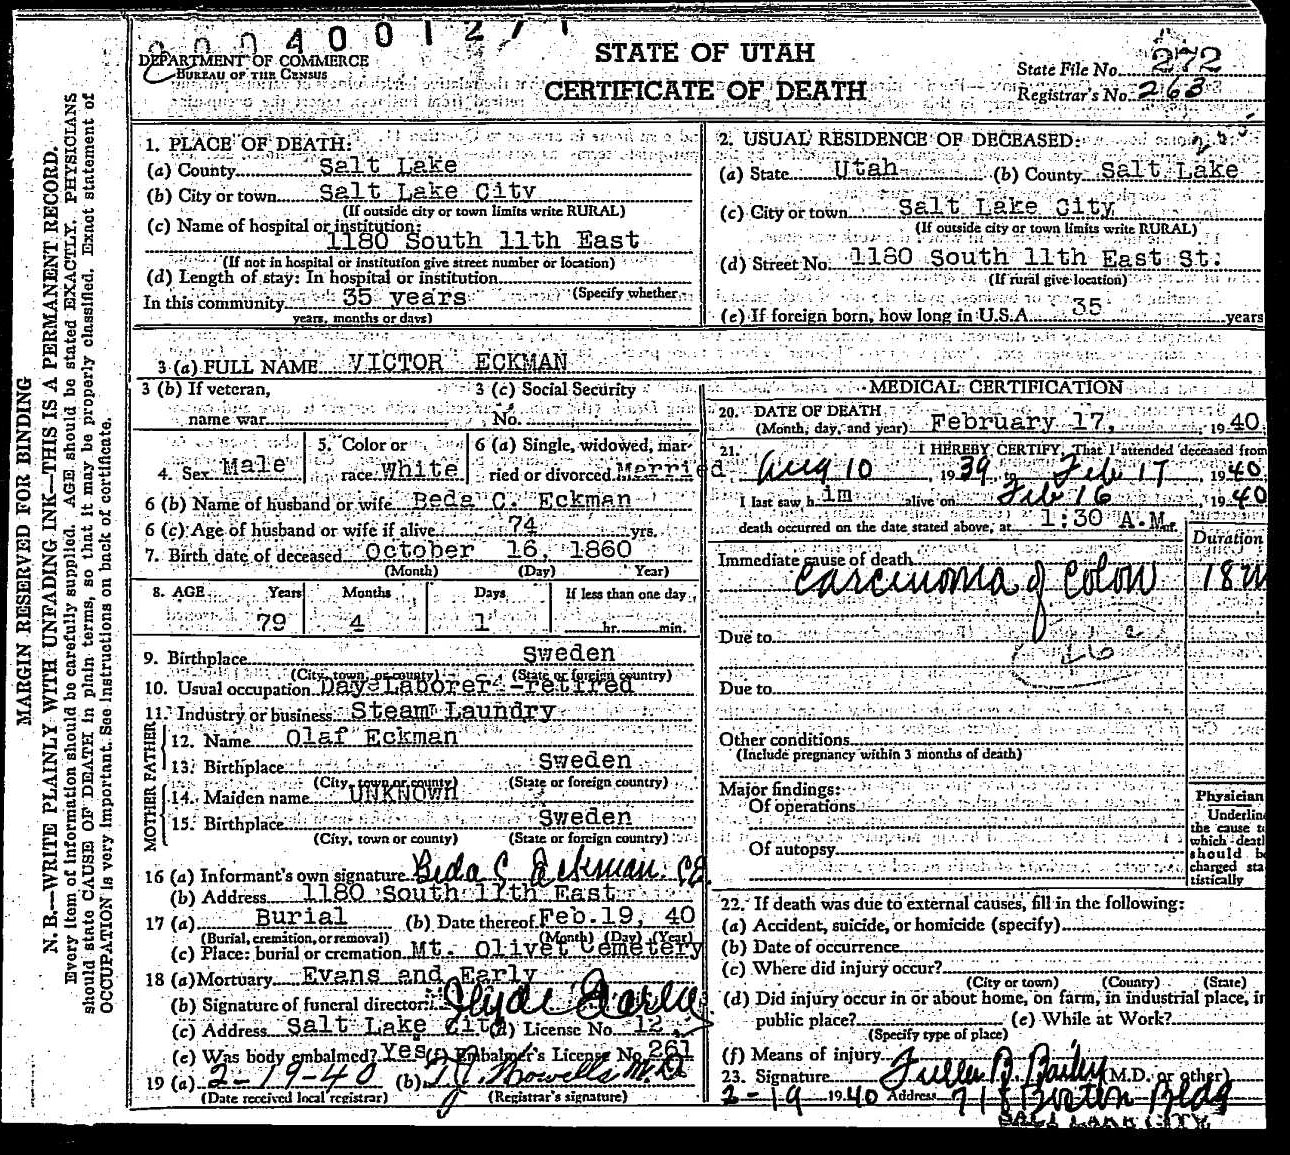 0004001271
DEPARTMENT OF COMMERCE
BUREAU OF THE CENSUS
STATE OF UTAH
CERTIFICATE OF DEATH
State File No. 272
Registrar's No. 263
MARGIN RESERVED FOR BINDING
N. B.—WRITE PLAINLY WITH UNFADING INK—THIS IS A PERMANENT RECORD.
Every item of information should be carefully supplied. AGE should be stated EXACTLY. PHYSICIANS
should state CAUSE OF DEATH in plain terms, so that it may be properly classified. Exact statement of
OCCUPATION is very important. See instructions on back of certificate.
1. PLACE OF DEATH:
(a) County Salt Lake
(b) City or town Salt Lake City
(If outside city or town limits write RURAL)
(c) Name of hospital or institution:
1180 South 11th East
(If not in hospital or institution give street number or location)
(d) Length of stay: In hospital or institution
(Specify whether
In this community 35 years
years, months or days)
2. USUAL RESIDENCE OF DECEASED:
(a) State Utah (b) County Salt Lake
(c) City or town Salt Lake City
(If outside city or town limits write RURAL)
(d) Street No. 1180 South 11th East St.
(If rural give location)
(e) If foreign born, how long in U.S.A. 35 years
3 (a) FULL NAME VICTOR ECKMAN
3 (b) If veteran,
name war
3 (c) Social Security
No.
4. Sex Male
5. Color or
race White
6 (a) Single, widowed, mar-
ried or divorced Married
6 (b) Name of husband or wife Beda C. Eckman
6 (c) Age of husband or wife if alive 74 yrs.
7. Birth date of deceased October 16, 1860
(Month) (Day) Year)
8. AGE Years Months Days If less than one day
79 4 1 hr. min.
9. Birthplace Sweden
(City, town, or county) (State or foreign country)
10. Usual occupation Day Laborer -retired
11. Industry or business Steam Laundry
FATHER
12. Name Olaf Eckman
13. Birthplace Sweden
(City, town or county) (State or foreign country)
MOTHER
14. Maiden name UNKNOWN
15. Birthplace Sweden
(City, town or county) (State or foreign country)
16 (a) Informant's own signature Beda C Eckman. CE
(b) Address 1180 South 11th East
17 (a) Burial (b) Date thereof Feb.19, 40
(Burial, cremation, or removal) (Month) (Day) (Year)
(c) Place: burial or cremation Mt. Olivet Cemetery
18 (a) Mortuary Evans and Early
(b) Signature of funeral director:
(c) Address Salt Lake City (d) License No. 12
(e) Was body embalmed? Yes (f) Embalmer's License No. 261
19 (a) 2-19-40 (b) Howells M.D.
(Date received local registrar) (Registrar's signature)
MEDICAL CERTIFICATION
20. DATE OF DEATH
(Month, day, and year) February 17, 1940
21. I HEREBY CERTIFY, That I attended deceased from
Aug 10, 1939, Feb 17, 1940
I last saw him alive on Feb 16, 1940
death occurred on the date stated above, at 1:30 A.M.
Duration
Immediate cause of death
Carcinoma of Colon 18
Due to
Due to
Other conditions
(Include pregnancy within 3 months of death)
Major findings:
Of operations
Of autopsy
Physician
Underline
the cause to
which death
should be
charged sta-
tistically
22. If death was due to external causes, fill in the following:
(a) Accident, suicide, or homicide (specify)
(b) Date of occurrence
(c) Where did injury occur?
(City or town) (County) (State)
(d) Did injury occur in or about home, on farm, in industrial place, in
public place? (e) While at Work?
(Specify type of place)
(f) Means of injury
23. Signature Fuller B. Bailey (M.D. or other)
2-19 1940 Address 718 Boston Bldg
SALT LAKE CITY